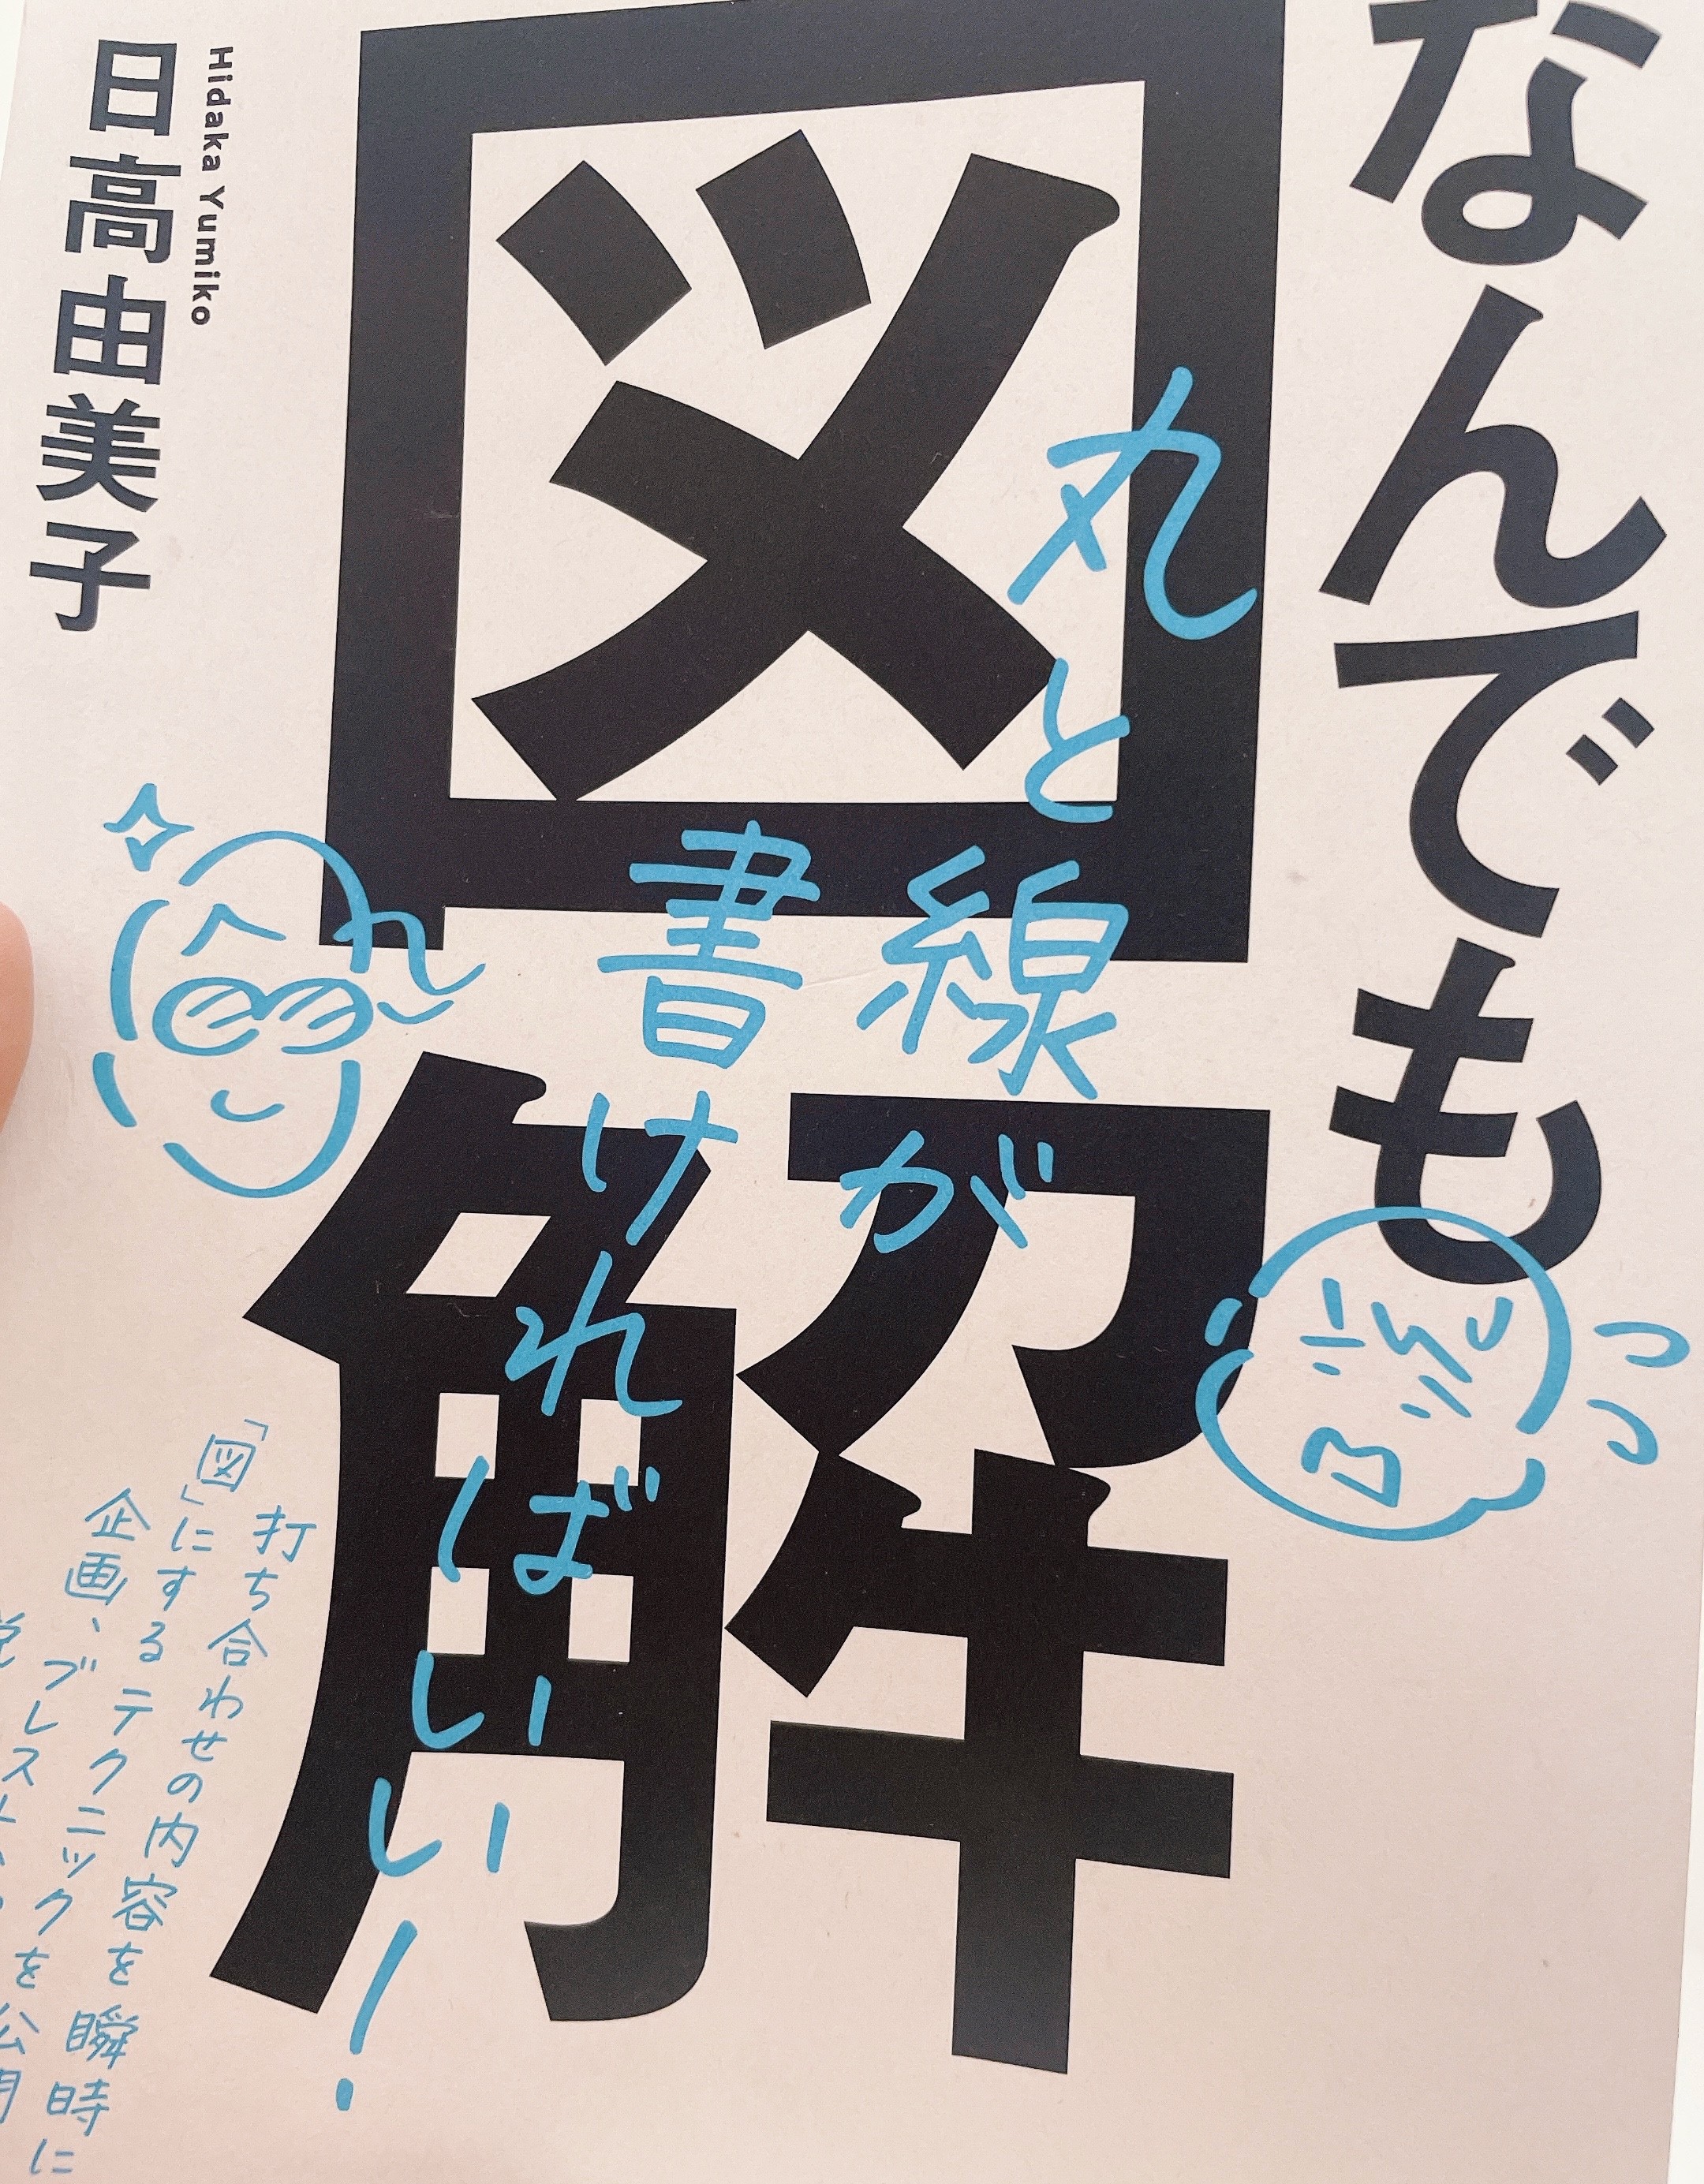 なんでも
図解
丸と
線が
書ければ
いい!
Hidaka Yumiko
日高由美子
打ち合わせの内容を瞬時に
「図」にするテクニックを公開
企画、ブレスト